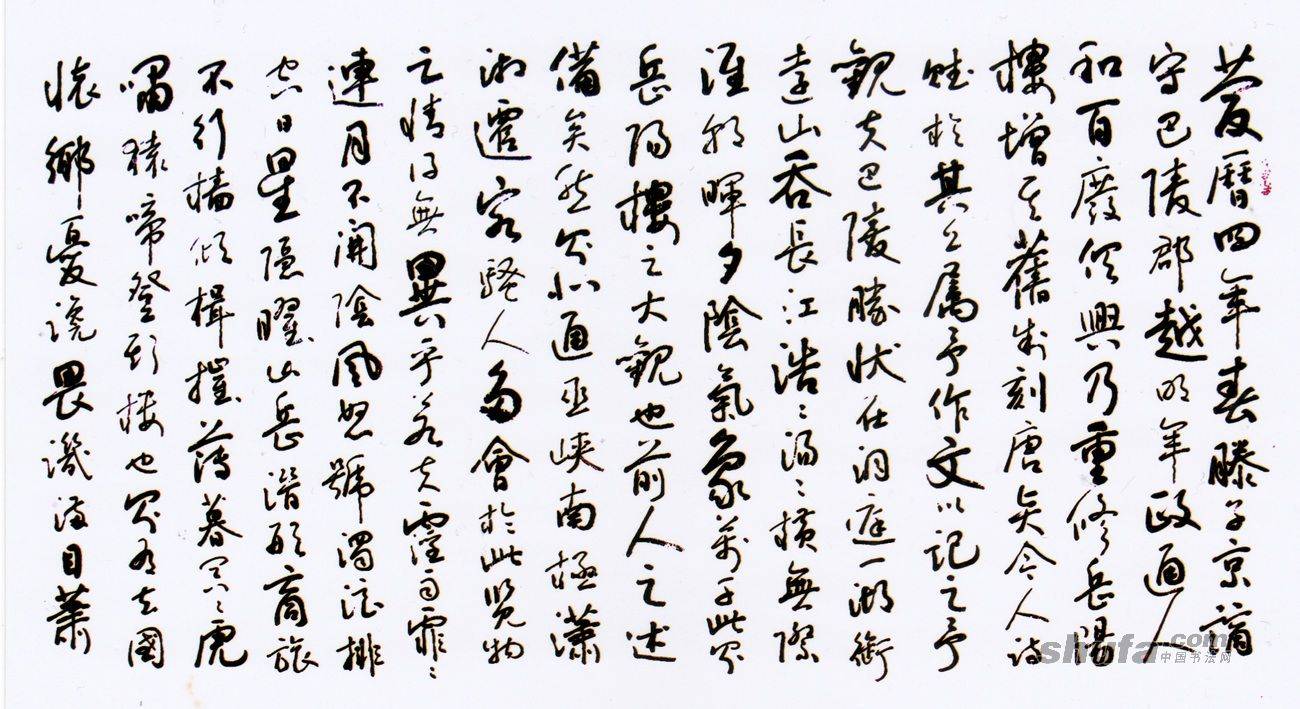 慶曆四年春滕子京謫
守巴陵郡越明年政通人
和百廢俱興乃重修岳陽
樓增其舊制刻唐賢今人詩
賦於其上屬予作文以記之予
觀夫巴陵勝狀在洞庭一湖銜
遠山吞長江浩〻湯〻橫無際
涯朝暉夕陰氣象萬千此則
岳陽樓之大觀也前人之述
備矣然則北通巫峽南極瀟
湘遷客騷人多會於此覽物
之情得無異乎若夫霪雨霏〻
連月不開陰風怒號濁浪排
空日星隱曜山岳潛形商旅
不行檣傾楫摧薄暮冥〻虎
嘯猿啼登斯樓也則有去國
懷鄉憂讒畏譏滿目蕭
shufa.com
中国书法网